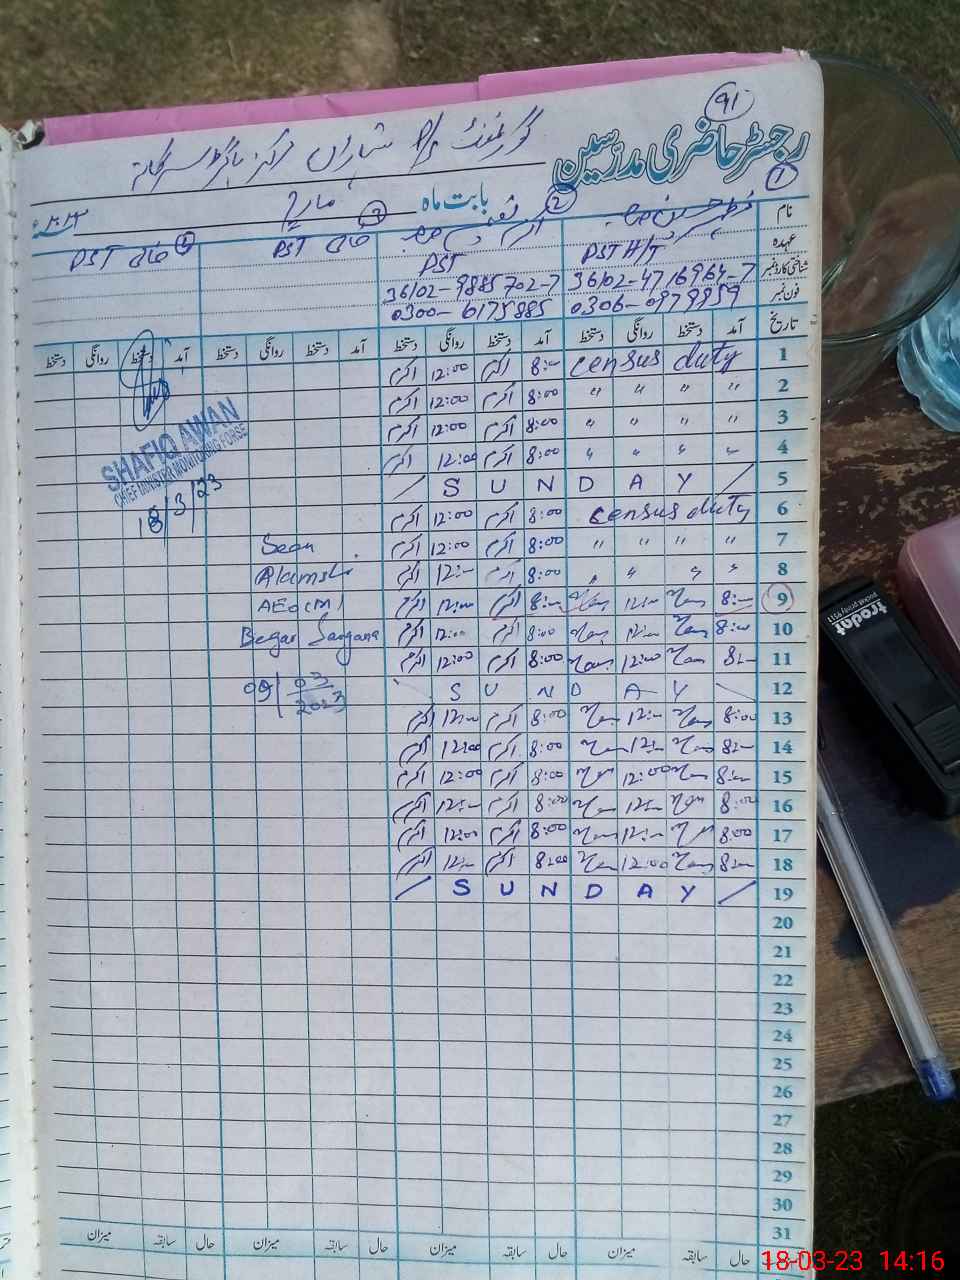 91
رجسٹر حاضری مدرسین
گورنمنٹ P/S
بابت ماہ مارچ ۲۰۲۳ء
1 2 3 4
نام
عہدہ PST H/T PST PST خالی PST خالی
شناختی کارڈ نمبر 36102-4716964-7 36102-9885702-7
فون نمبر 0306-0979959 0300-6175885
تاریخ آمد دستخط روانگی دستخط آمد دستخط روانگی دستخط آمد دستخط روانگی دستخط آمد دستخط روانگی دستخط
1 census duty 8:00 اکرم 12:00 اکرم
2 " " " " 8:00 اکرم 12:00 اکرم
3 " " " " 8:00 اکرم 12:00 اکرم
4 " " " " 8:00 اکرم 12:00 اکرم
5 / S U N D A Y /
6 census duty 8:00 اکرم 12:00 اکرم
7 " " " " 8:00 اکرم 12:00 اکرم
8 " " " " 8:00 اکرم 12:00 اکرم
9 8:00 12:00 8:00 اکرم 12:00 اکرم
10 8:00 12:00 8:00 اکرم 12:00 اکرم
11 8:00 12:00 8:00 اکرم 12:00 اکرم
12 S U N D A Y
13 8:00 12:00 8:00 اکرم 12:00 اکرم
14 8:00 12:00 8:00 اکرم 12:00 اکرم
15 8:00 12:00 8:00 اکرم 12:00 اکرم
16 8:00 12:00 8:00 اکرم 12:00 اکرم
17 8:00 12:00 8:00 اکرم 12:00 اکرم
18 8:00 12:00 8:00 اکرم 12:00 اکرم
19 / S U N D A Y /
20
21
22
23
24
25
26
27
28
29
30
31
حال سابقہ میزان حال سابقہ میزان حال سابقہ میزان حال سابقہ میزان
Seen
AEO (M)
09/03/2023
SHAFIQ AWAN
CHIEF MINISTER MONITORING FORSE
18/3/23
trodat
pocket printy 9511
18-03-23 14:16